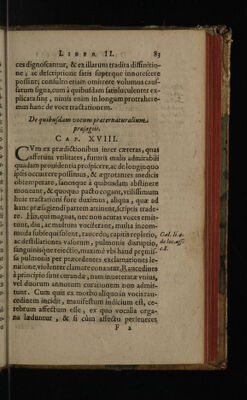 LIBER II. 83
ces dignoscantur, & ex illarum tradita diffinitio-
ne, ac descriptione satis superque innotescere
possint; consulto etiam omittere volumus cau-
sarum signa, cum à quibusdam satis luculenter ex-
plicata sint, nimis enim in longum protrahere-
mus hanc de voce tractationem.
De quibusdam vocum præternaturalium
præsagiis.
CAP. XVIII.
CVm ex prædictionibus inter cæteras, quas
afferunt vtilitates, futuris malis admirabili
quadam prouidentia prospicere, ac de longinquo
ipsis occurrere possimus, & ægrotantes medicis
obtemperare, sanosque à quibusdam abstinere
moneant, & quoquo pacto cogant, vtilissimum
huic tractationi fore duximus, aliqua, quæ ad
hanc præsagiendi partem attinent, scriptis trade-
re. His, qui magnas, nec non acutas voces emit-
tunt, dum, ac multum vociferant, multa incom-
moda subsequi solent, raucedo, capitis repletio,
ac destillationes valorum, pulmonis disruptio,
sanguinisque reiectio, maxime vbi haud prægnis-
sa pulmonis per præcedentes exclamationes le-
nitione, violenter clamare conantur. Raucedines
à principio sunt curandæ, nam inueteratæ vnius,
vel duorum annorum curationem non admit-
tunt. Cum quis ex morbo aliquo in vocis rau-
cedinem incidit, manifestum indicium est, ce-
rebrum affectum esse, ex quo vocalia orga-
na læduntur, & si cùm affectu perseueret
F 2
Gal. li. 4.
de loc. aff.
c. 8.